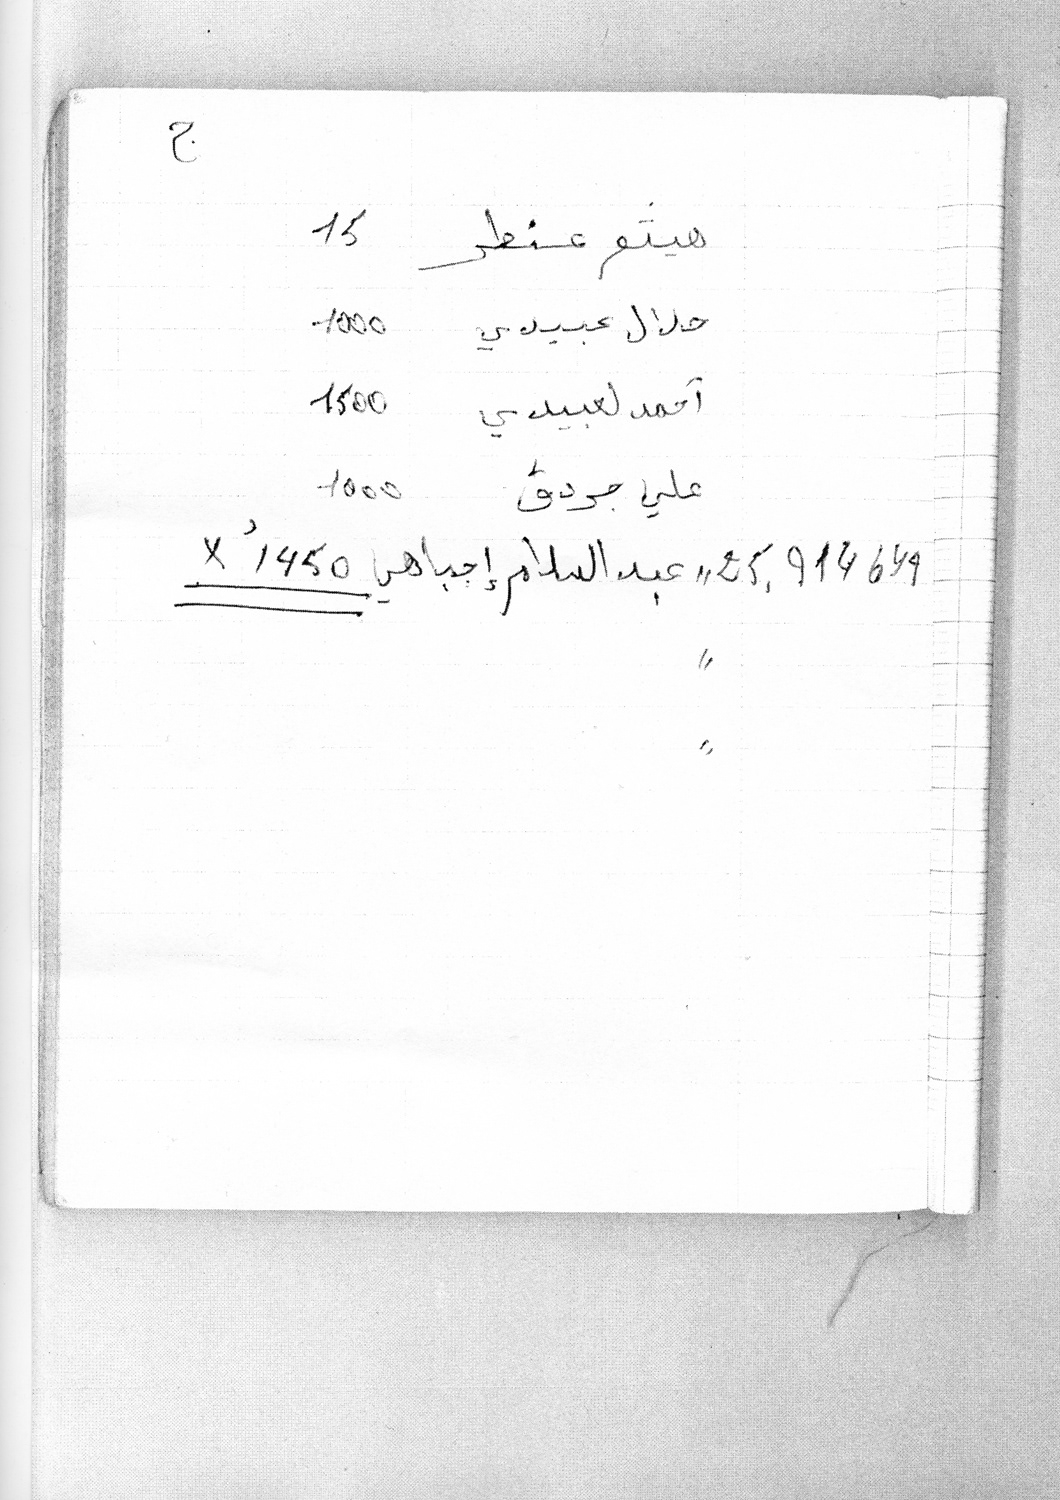 ج
هيثم عنطر 15
حلال عبيدي 1000
أحمد لعبيدي 1500
علي جردق 1000
25,914649 " عبد السلام إجباهي 1450' X
"
"